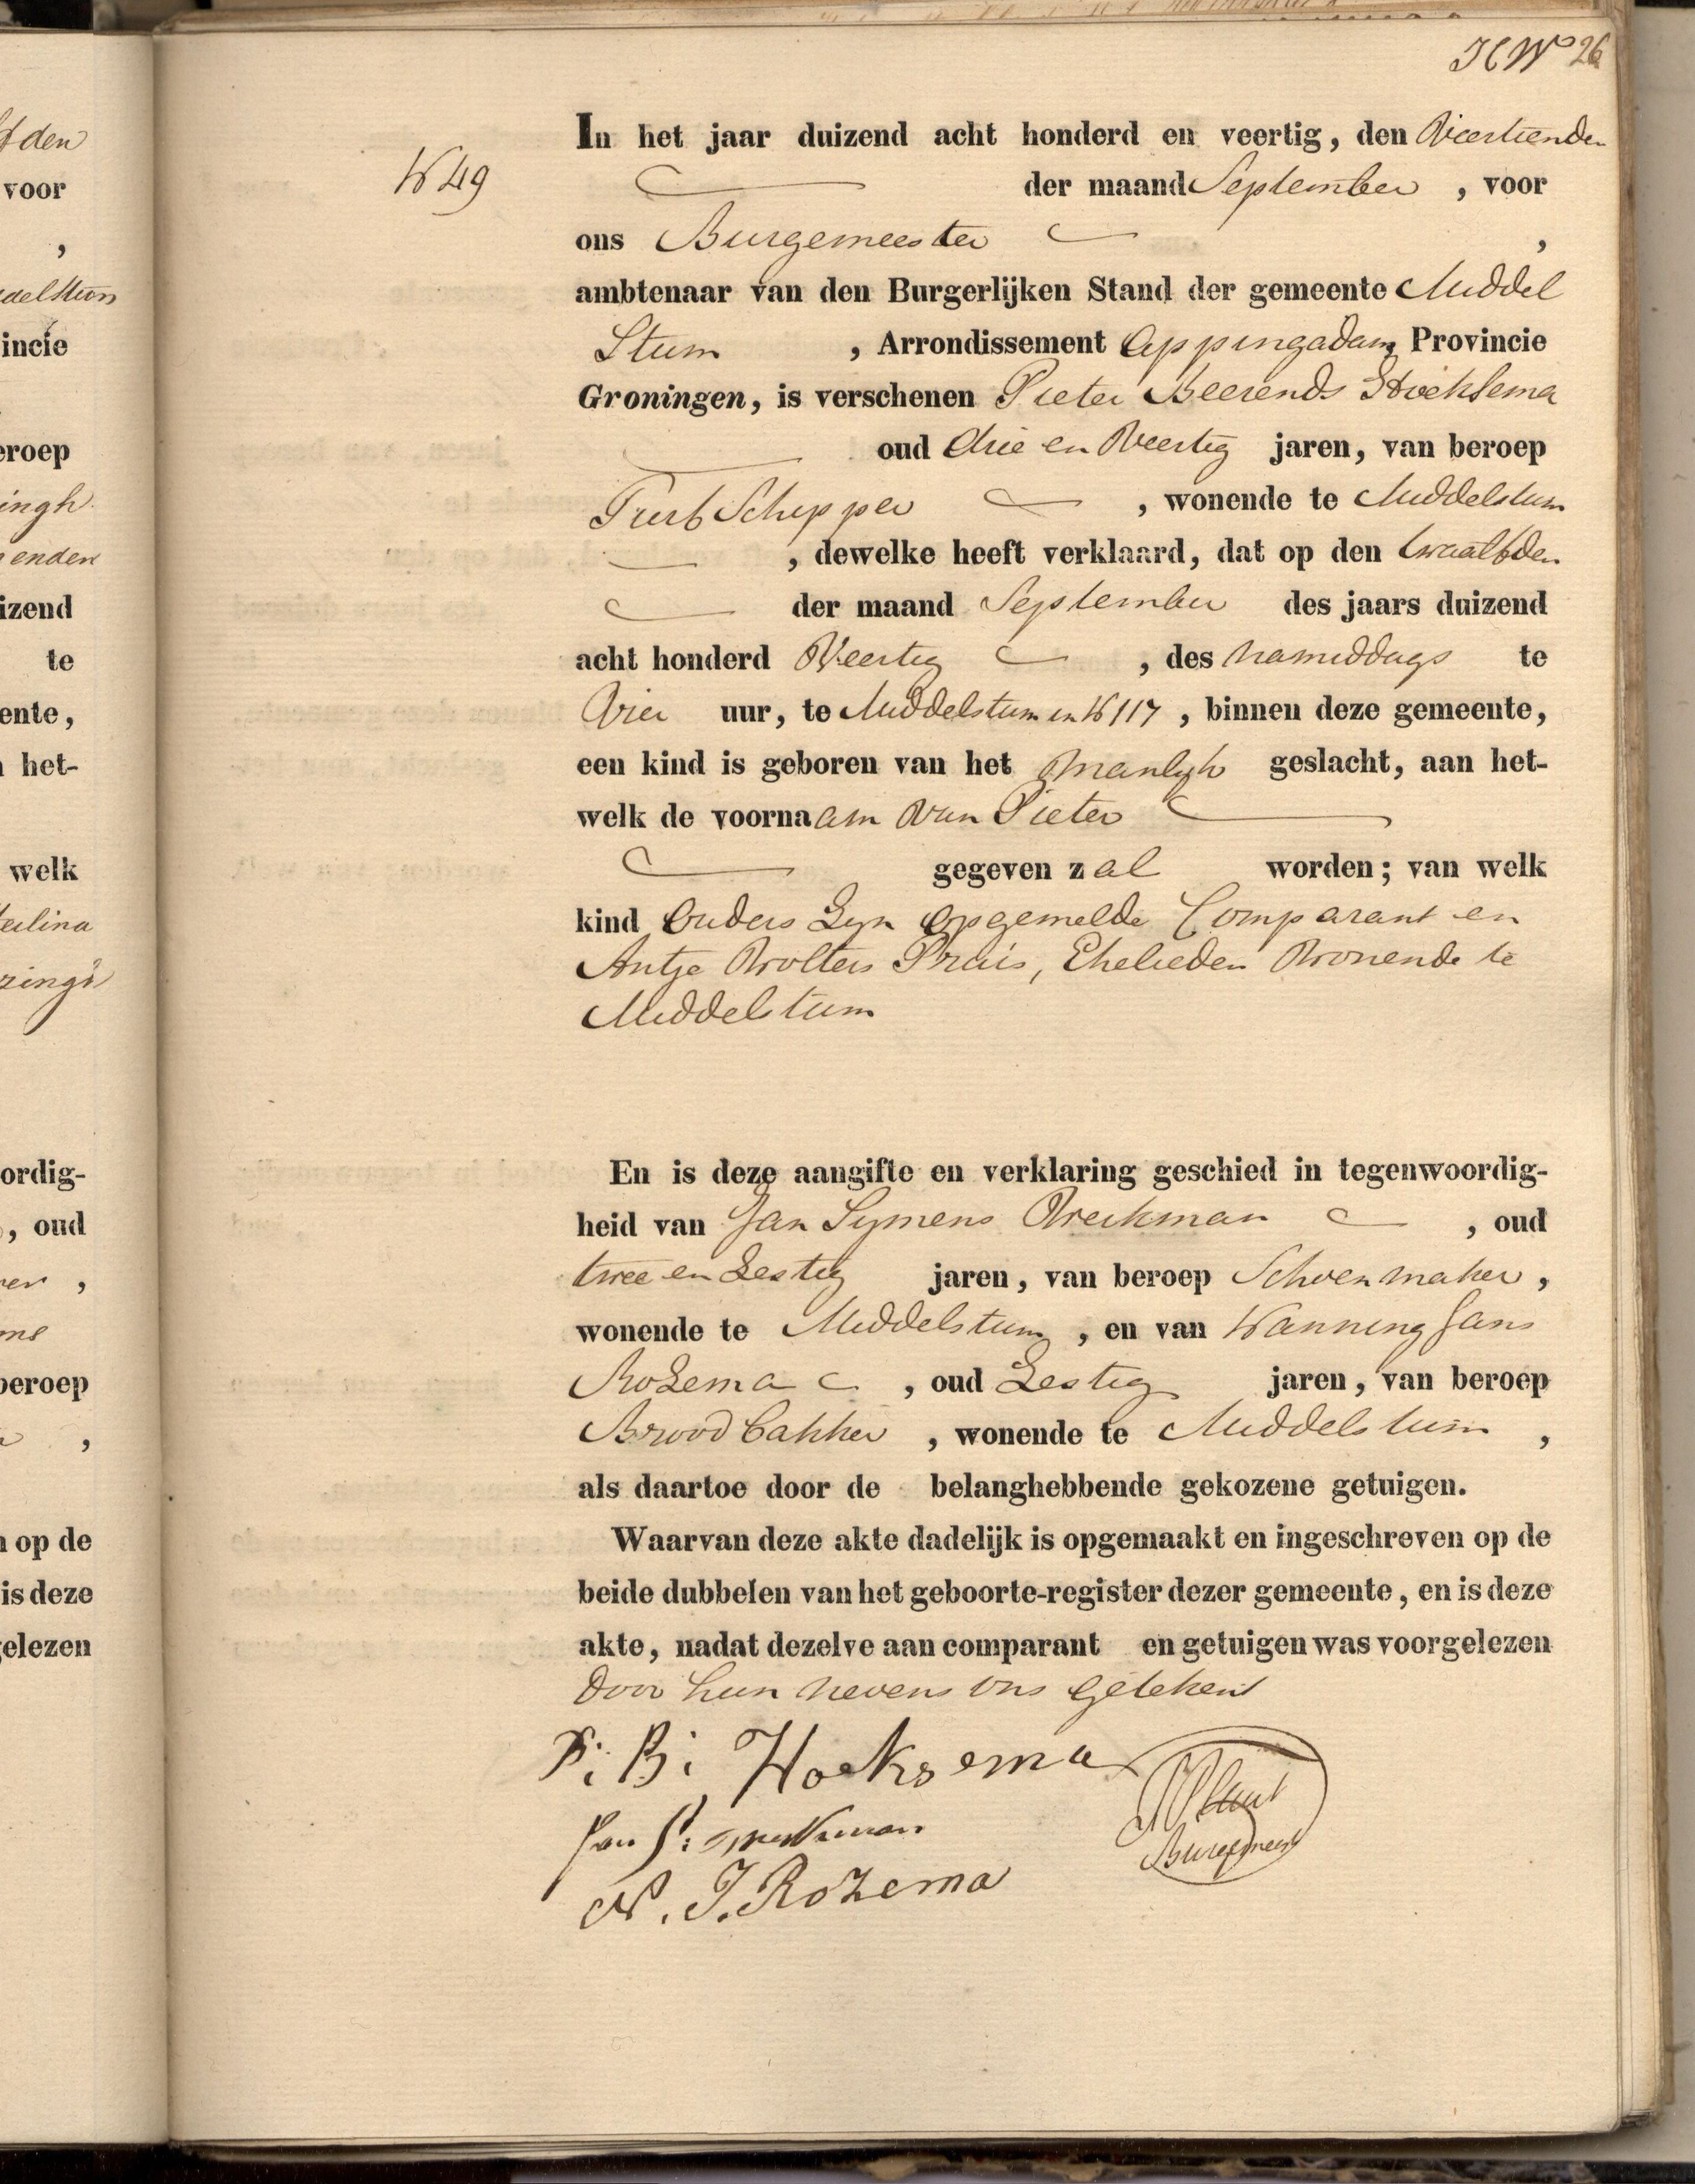 26
N 49
In het jaar duizend acht honderd en veertig, den Veertienden
der maand September , voor
ons Burgemeester ,
ambtenaar van den Burgerlijken Stand der gemeente Middel
Stum , Arrondissement Appingadam, Provincie
Groningen, is verschenen Pieter Beerends Hoeksema
oud drie en Veertig jaren, van beroep
Turf Schipper , wonende te Middelstum
, dewelke heeft verklaard, dat op den twaalfden
der maand September des jaars duizend
acht honderd Veertig , des namiddags te
Vier uur, te Middelstum in N 117 , binnen deze gemeente,
een kind is geboren van het Manlyk geslacht, aan het-
welk de voornaam van Pieter
gegeven zal worden; van welk
kind Ouders Zyn Opgemelde Comparant en
Antje Wolters Pruis, Ehelieden Wonende te
Middelstum
En is deze aangifte en verklaring geschied in tegenwoordig-
heid van Jan Symens , oud
twee en Zestig jaren, van beroep Schoenmaker ,
wonende te Middelstum , en van Nanning Jans
Rozema , oud Zestig jaren, van beroep
Brood bakker , wonende te Middelstum ,
als daartoe door de belanghebbende gekozene getuigen.
Waarvan deze akte dadelijk is opgemaakt en ingeschreven op de
beide dubbelen van het geboorte-register dezer gemeente, en is deze
akte, nadat dezelve aan comparant en getuigen was voorgelezen
door hun nevens ons getekent
P: B: Hoeksema
Jan S:
Burgemeest
N. J. Rozema